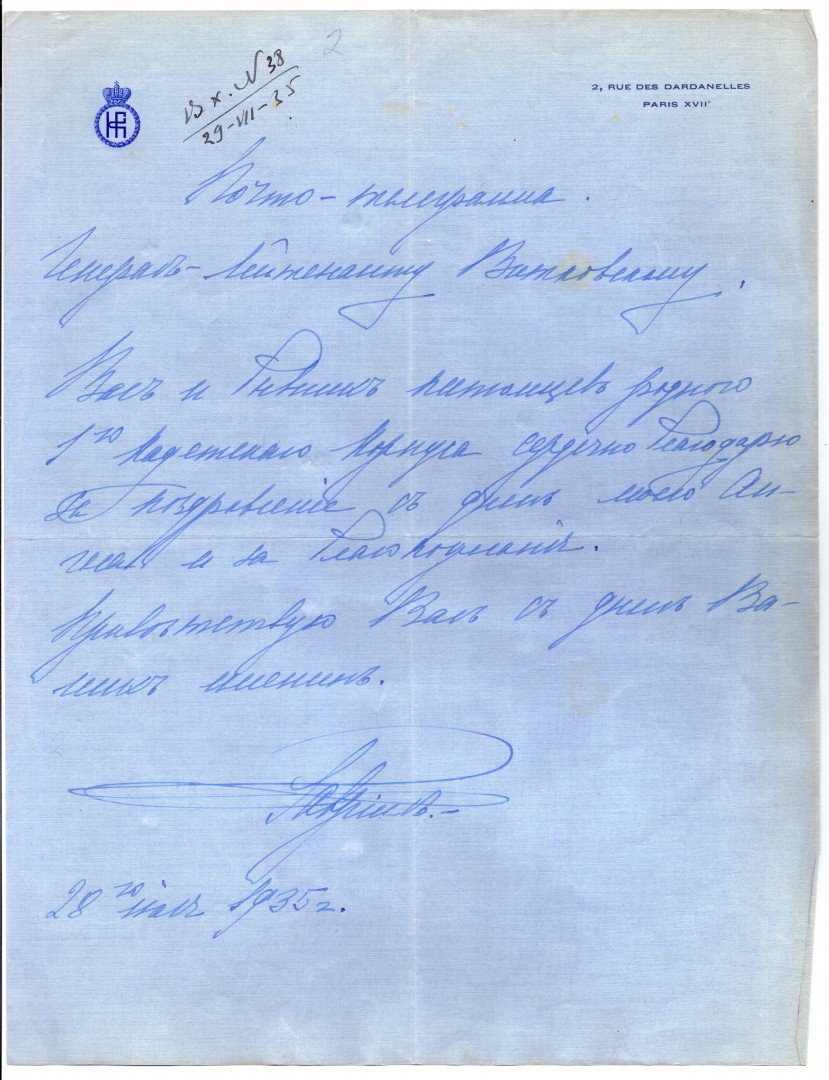 2
Вх. № 38
29-VII-35
2, RUE DES DARDANELLES
PARIS XVIIᵉ
Почто-телеграмма.
Генералъ-Лейтенанту Витковскому,
Васъ и бывшихъ питомцевъ родного
1го Кадетскаго Корпуса сердечно благодарю
за поздравленіе съ днемъ моего Ан-
гела и за благопожеланія.
Привѣтствую Васъ съ днемъ Ва-
шихъ именинъ.
28го іюля 1935 г.